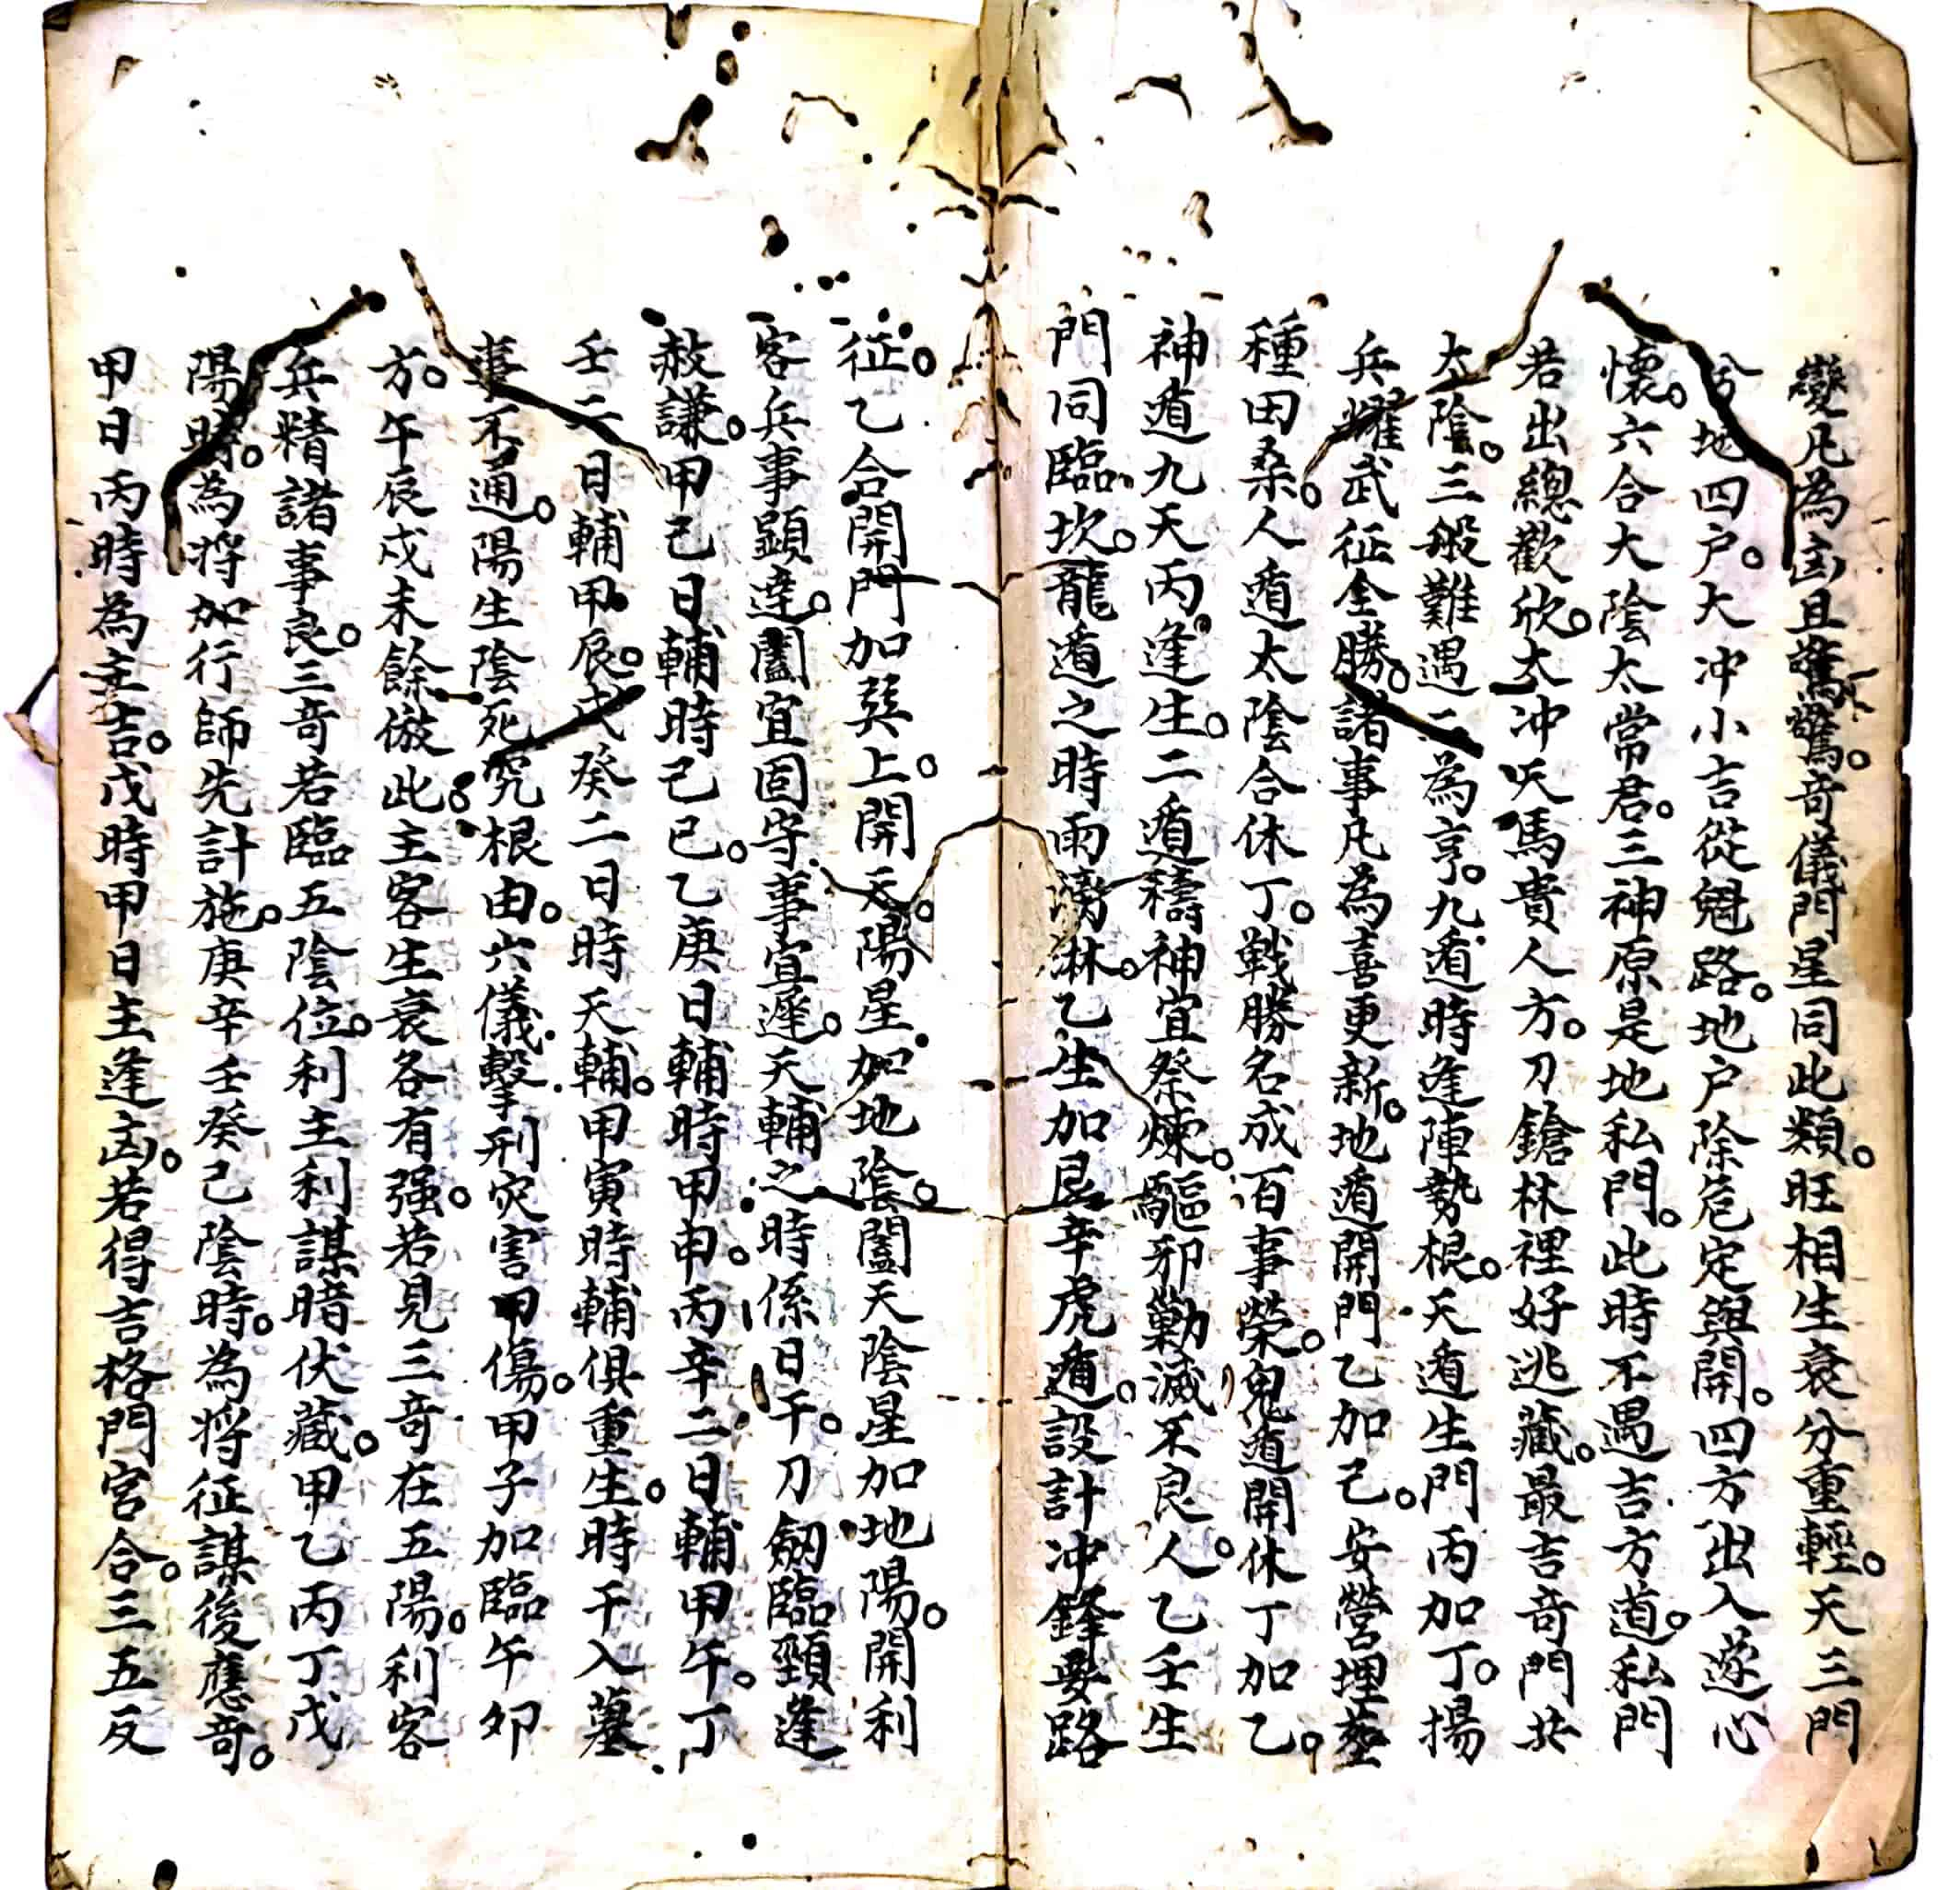 變凡為凶且驚驚。奇儀門星同此類。旺相生衰分重輕。天三門
兮地四户。大冲小吉從魁路。地户除危定與開。四方出入遂心
懷。六合大陰太常君。三神原是地私門。此時不遇吉方道。私門
若出總歡欣。太冲天馬貴人方。刀鎗林裡好逃藏。最吉奇門共
太陰。三般難遇二為亨。九遁時逢陣勢根。天遁生門丙加丁。揚
兵耀武征全勝。諸事凡為喜更新。地遁開門乙加己。安營埋塟
種田桑。人遁太陰合休丁。戰勝名成百事榮。鬼遁開休丁加乙。
神遁九天丙逢生。二遁禱神宜祭煉。驅邪勦滅不良人。乙壬生
門同臨坎。龍遁之時雨淋。乙生加艮辛虎遁。設計冲鋒要路
征。乙合開門加巽上。開天陽星加地陰。闔天陰星加地陽。開利
客兵事顕達。闔宜固守事宜遲。天輔之時係日干。刀劒臨頸逢
赦謙。甲己日輔時己巳。乙庚日輔時甲申。丙辛二日輔甲午。丁
壬二日輔甲辰。戊癸二日時天輔。甲寅時輔俱重生。時干入墓
事不通。陽生陰死究根由。六儀擊刑灾害甲傷。甲子加臨午卯
方。午辰戍未餘倣此。主客生衰各有强。若見三奇在五陽。利客
兵精諸事良。三奇若臨五陰位。利主利謀暗伏藏。甲乙丙丁戊
陽時。為将加行師先計施。庚辛壬癸己陰時。為将征謀後應奇。
甲日丙時為主吉。戊時甲日主逢凶。若得吉格門宮合。三五反